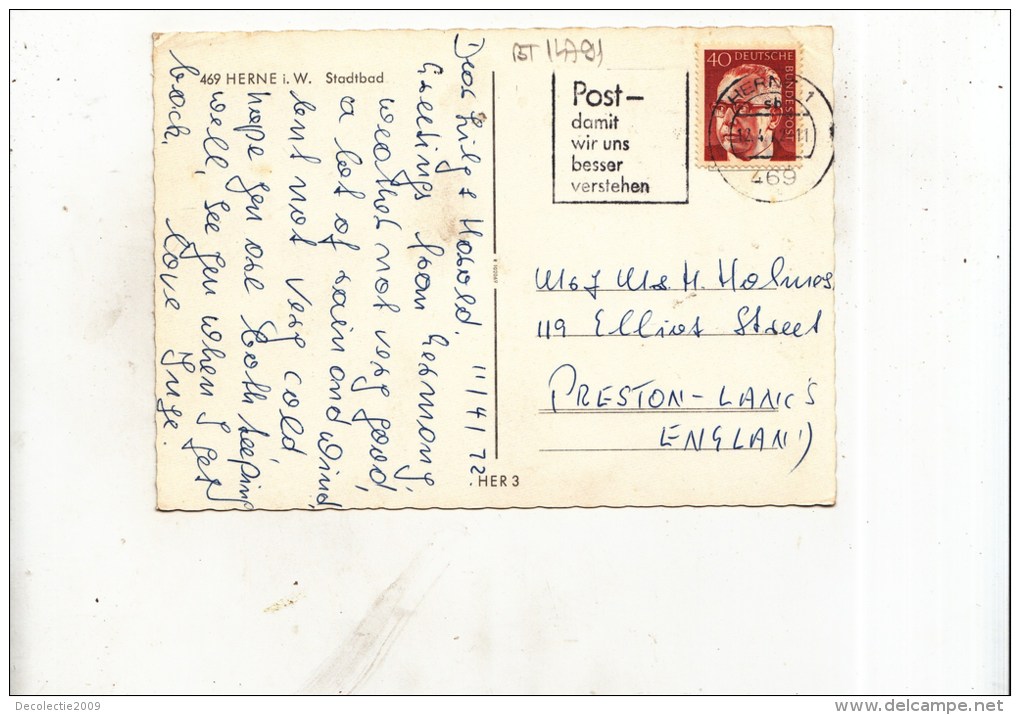 469 HERNE i. W. Stadtbad
Dear Lily & Harold. 11/4/72
Greetings from Germany,
weather not very good,
a lot of rain and wind,
but not very cold
hope you are both keeping
well, see you when I get
back.
Love Inge.
Post-
damit
wir uns
besser
verstehen
40 DEUTSCHE
BUNDESPOST
HERNE 1
sb
469
Mr & Mrs H. Holmes
119 Elliot Street
PRESTON-LANCS
ENGLAND
HER 3
Decolectie2009
www.delcampe.net